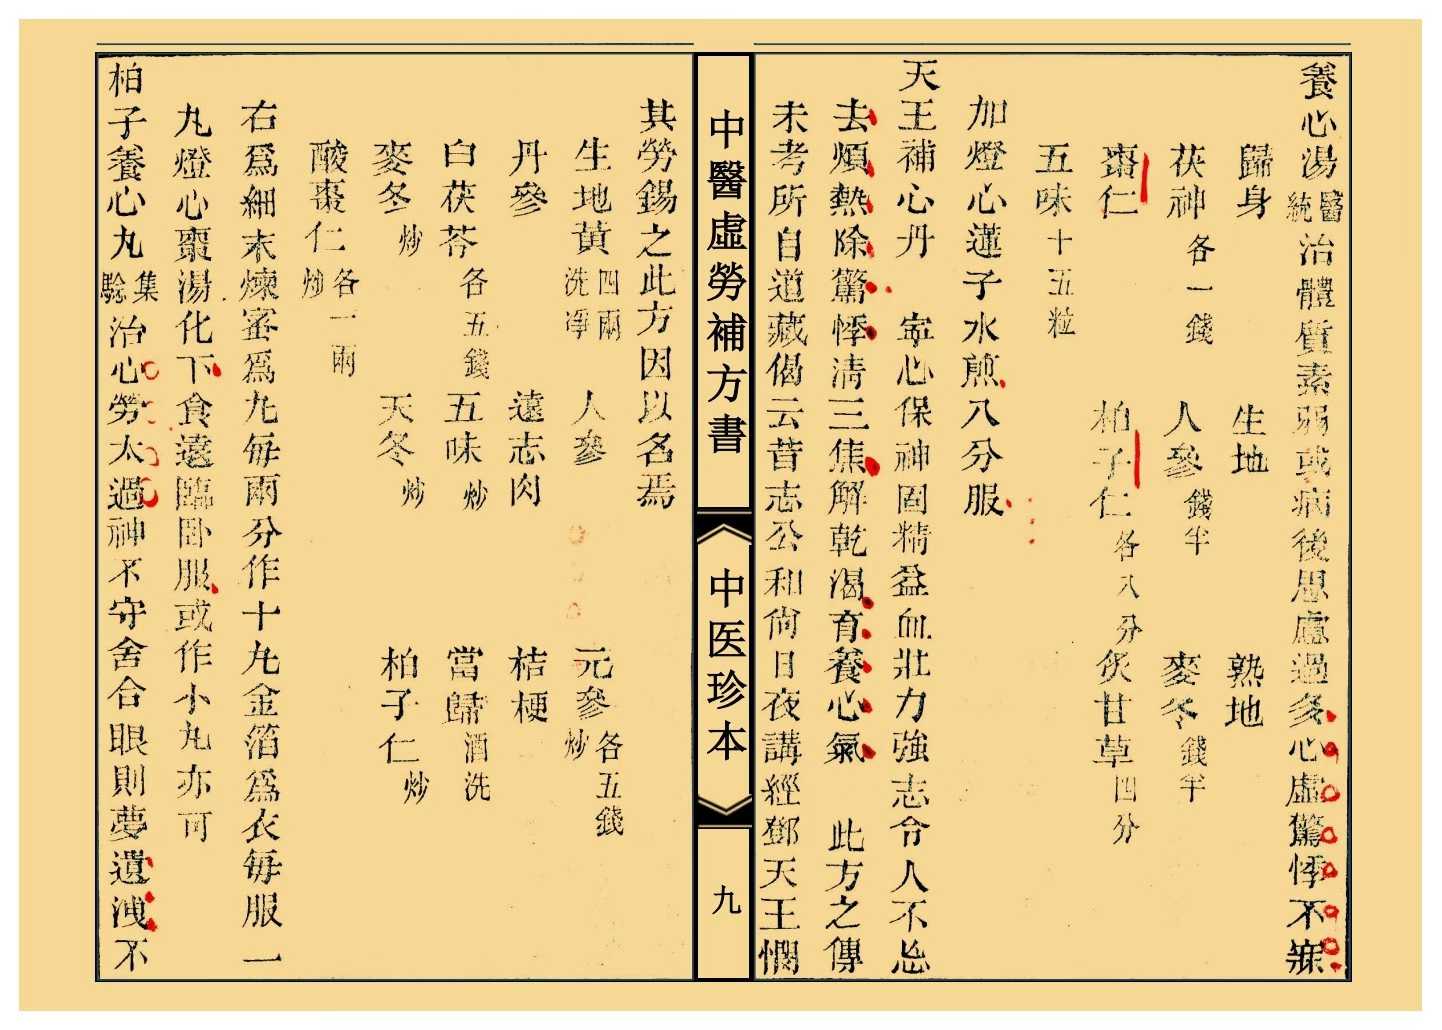 養心湯醫統治體質素弱或病後思慮過多心虛驚悸不寐
歸身 生地 熟地
茯神各一錢 人參錢半 麥冬錢半
棗仁 柏子仁各八分 炙甘草四分
五味十五粒
加燈心蓮子水煎八分服
天王補心丹 寧心保神固精益血壯力強志令人不忘
去煩熱除驚悸清三焦解乾渴育養心氣 此方之傳
未考所自道藏偈云昔志公和尚日夜講經鄧天王憫
中醫虛勞補方書
中医珍本
九
其勞錫之此方因以名焉
生地黃四兩洗淨 人參 元參各五錢炒
丹參 遠志肉 桔梗
白茯苓各五錢 五味炒 當歸酒洗
麥冬炒 天冬炒 柏子仁炒
酸棗仁各一兩炒
右爲細末煉蜜爲丸每兩分作十丸金箔爲衣每服一
丸燈心棗湯化下食遠臨卧服或作小丸亦可
柏子養心丸集驗治心勞太過神不守舍合眼則夢遺洩不